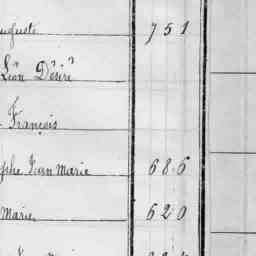 Auguste 751
Léon Désiré
François
Jean Marie 686
Marie 620